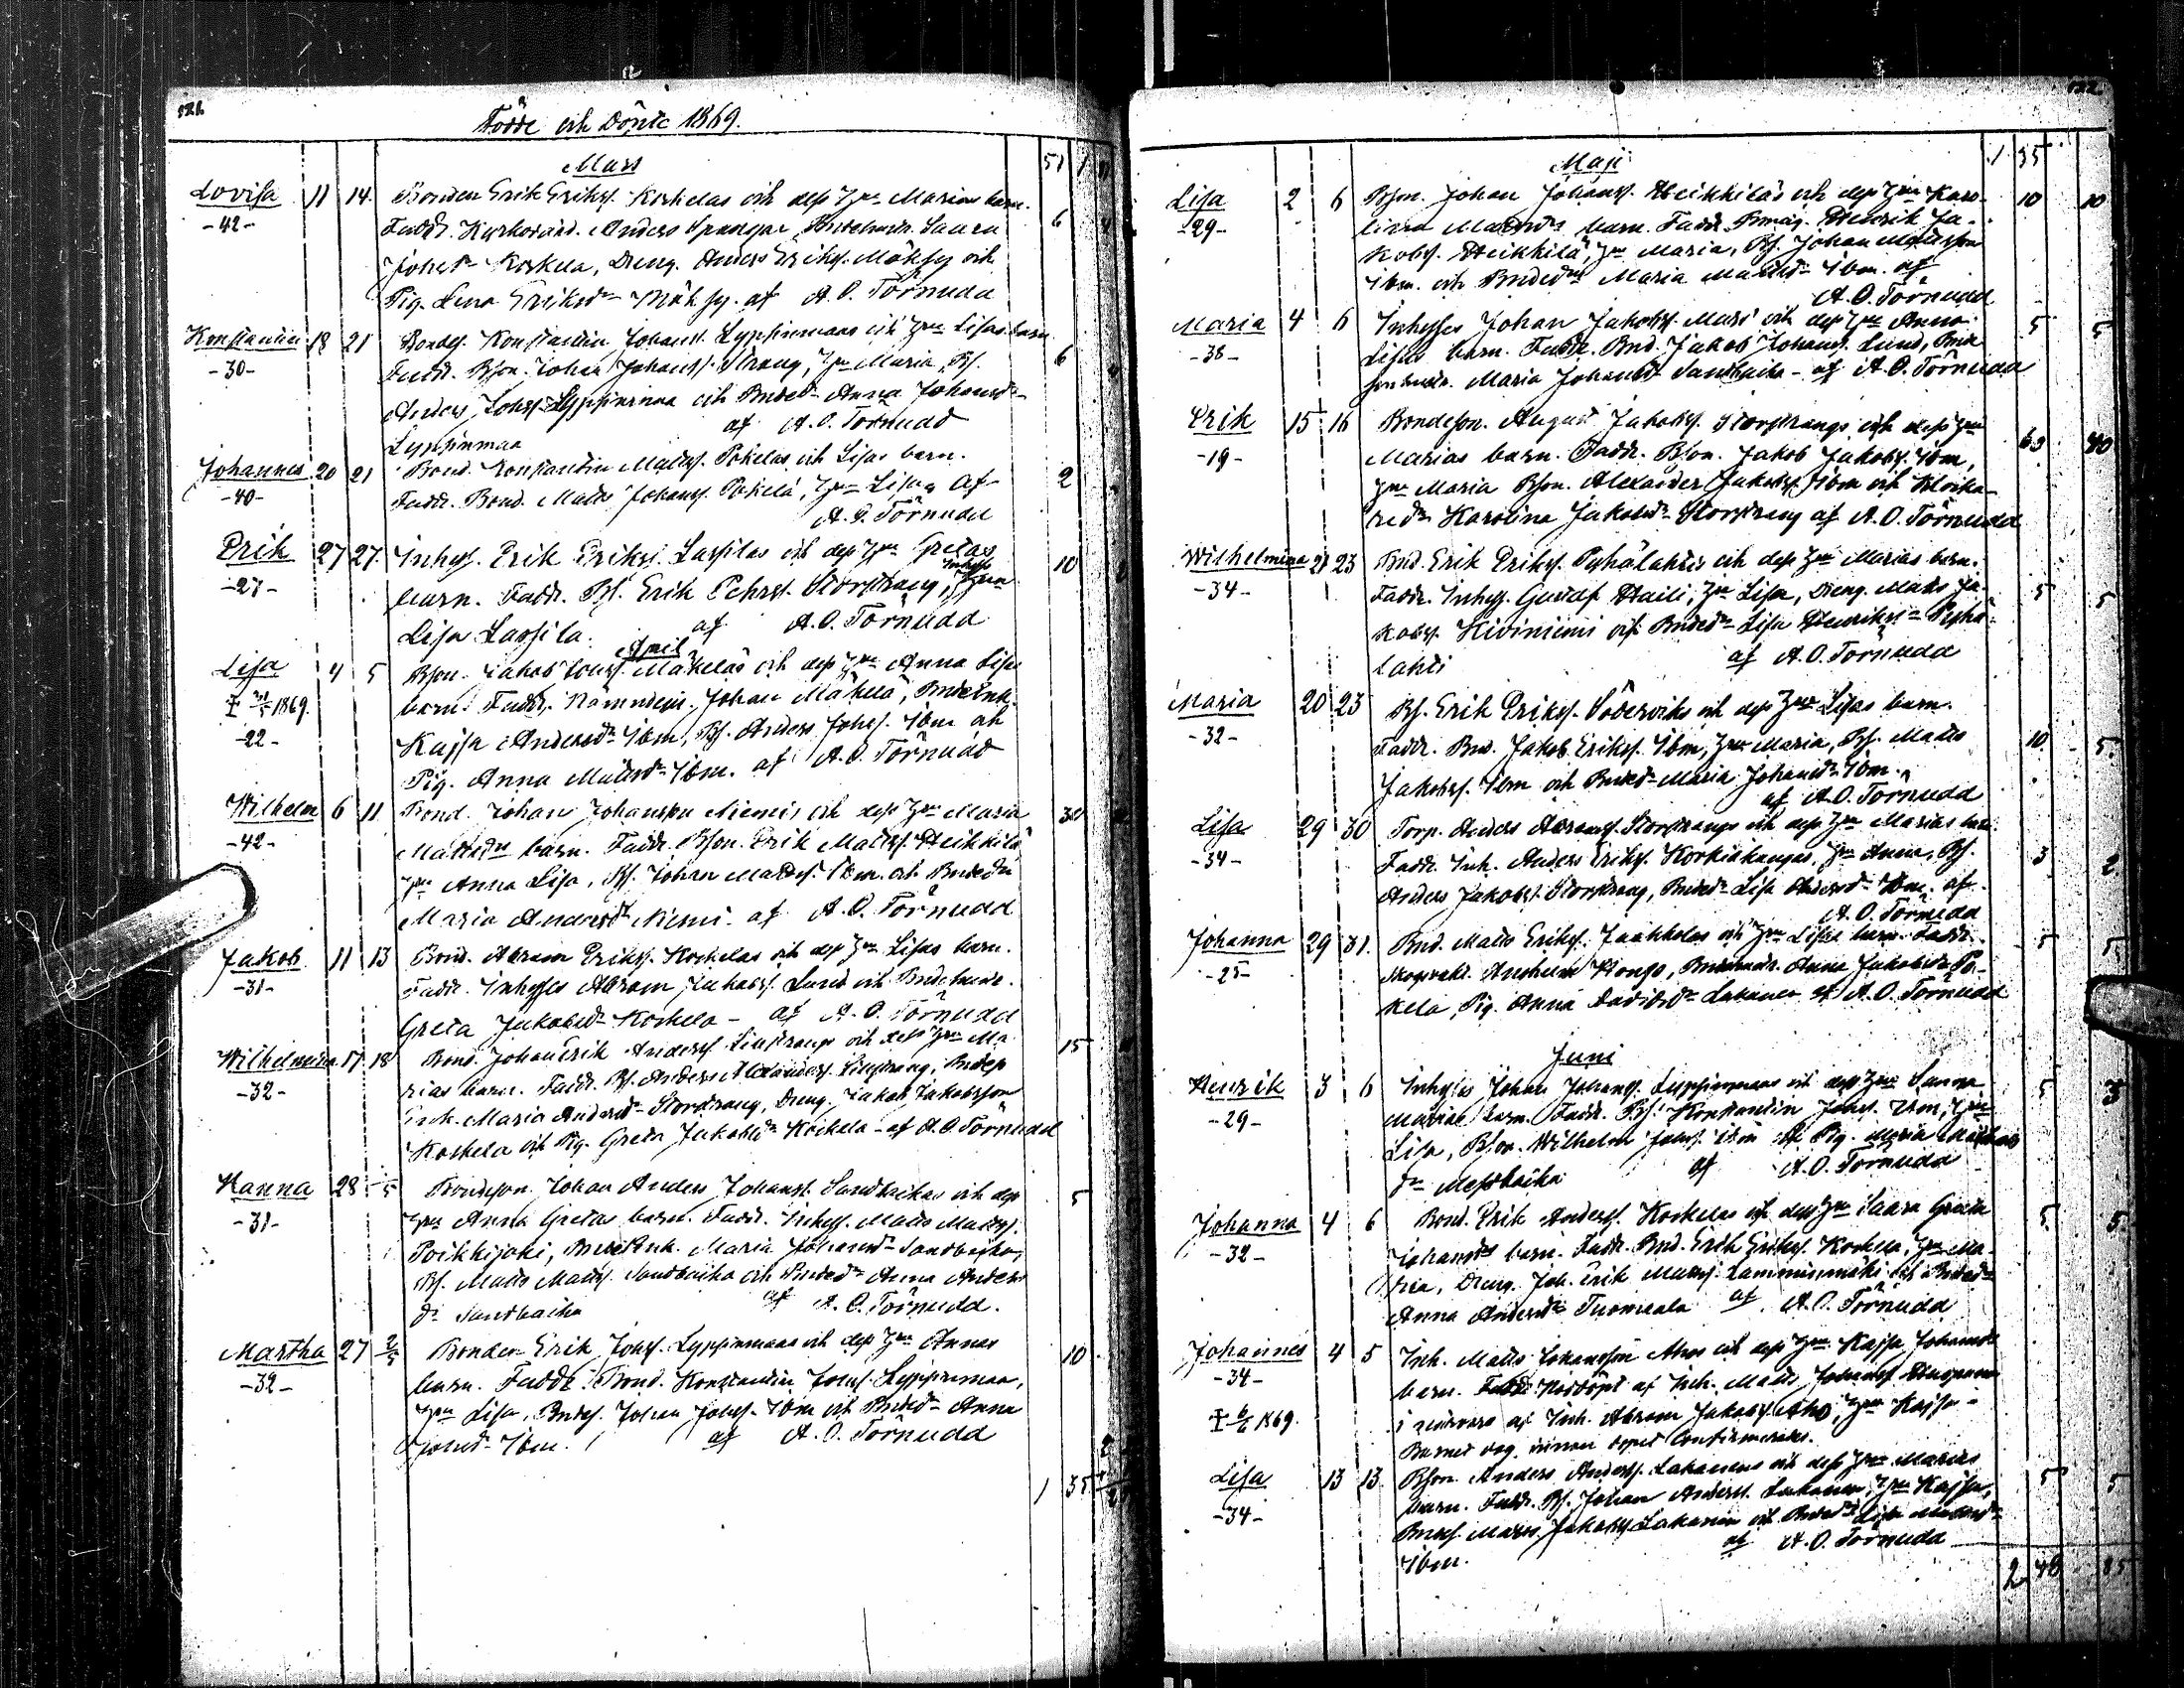 121.
Födde och Döpte 1869.
Mars
51 1
Lovisa 11 14. Bonden Erik Eriks. Koskelas och dess hu Marias barn.
-42- Faddr. Kyrkovärd. Anders Spangar, Bndehustr. Saara 6
Johsdr Koskela, Dreng. Anders Eriks. Möksy och
Pig. Lena Eriksdr Möksy. af A. O. Törnudd
Konstantin 18 21 Bondes. Konstantin Johanss. Lyppinmaas och hus Lisas barn.
-30- Faddr. Bson. Johan Johanss. Strang, hu Maria, Bs. 6
Anders Johss. Lyppinmaa och Bndedr Anna Johansdr
Lyppinmaa af A. O. Törnudd
Johannes 20 21 Bond. Konstantin Matss. Pokelas och Lisas barn.
-40- Faddr. Bond. Matts Johanss. Pokela, hu Lisa. af 2
A. O. Törnudd
Erik 27 27. Inhys. Erik Eriks. Lassilas och dess hu Gretas 10
-27- barn. Faddr. Bs. Erik Pehrss. Storstrang, Inhyss hustru
Lisa Lassila. af A. O. Törnudd
April
Lisa 4 5 Bson. Jakob Johss. Mäkeläs och dess hu Anna Lisas
1869. barn. Faddr. Nämndem. Johan Mäkelä, Bndeenk.
-22- Kajsa Andersdr Ibm, Bs. Anders Johss. Ibm och
Pig. Anna Mattsdr Ibm. af A. O. Törnudd
Wilhelm 6 11 Bond. Johan Johansson Niemis och dess hu Maria 30
-42- Mattsdrs barn. Faddr. Bson. Erik Matss. Heikkilä
hu Anna Lisa, Bs. Johan Matss. Ibm. och Bndedr
Maria Andersdr Niemi. af A. O. Törnudd
Jakob 11 13 Bond. Abram Eriks. Koskelas och dess hu Lisas barn.
-31- Faddr. Inhyses Abram Jakobs. Lund och Bndehustr.
Greta Jakobsdr Koskela - af A. O. Törnudd
Wilhelmina 17 18 Bond. Johan Erik Anderss. Lillstrangs och dess hu Ma- 15
-32- rias barn. Faddr. Bs. Anders Alexanders. Lillstrang, Bndes
Enk. Maria Andersdr Storstrang, Dreng. Jakob Jakobsson
Koskela och Pig. Greta Jakobsdr Koskela - af A. O. Törnudd
Hanna 28 /5 Bondeson. Johan Anders Johanss. Sandbackas och dess 5
-31- hus Anna Gretas barn. Faddr. Inhyss. Matts Matss.
Poikkijoki, Bndeenk. Maria Johansdr Sandbacka,
Bs. Matts Matss. Sandbacka och Bndedr Anna Anders
dr Sandbacka af A. O. Törnudd.
Martha 27 2/5 Bonden Erik Johss. Lyppinmaas och dess hu Annas 10
-32- barn. Faddr. Bond. Konstantin Johss. Lyppinmaa,
hu Lisa, Bndes. Johan Johss. Ibm och Bndedr Anna
Johsdr Ibm. af A. O. Törnudd
1 35
122
Maji
1 35
Lisa 2 6 Bson. Johan Johanss. Heikkiläs och dess hu Karo- 10 10
-29- lina Mattsdrs barn. Faddr. Bmåg. Henrik Ja-
kobs. Heikkilä, hu Maria, Bs. Johan Mattsson
Ibm. och Bndedr Maria Mattsdr Ibm. af
A. O. Törnudd
Maria 4 6 Inhyses Johan Jakobs. Mars och dess hu Anna 5 5
-38- Lisas barn. Faddr. Bnd. Jakob Johanss. Lund, Bnde
sonhustr. Maria Johansdr Sandbacka - af A. O. Törnudd
Erik 15 16 Bondeson. August Jakobs. Storstrangs och dess hu
-19- Marias barn. Faddr. Bson. Jakob Jakobs. Ibm, 60 40
hu Maria Bson. Alexander Jakobs. Ibm och Klocka-
redr Karolina Jakobsdr Storstrang af A. O. Törnudd
Wilhelmina 21 23 Bnd. Erik Eriks. Pyhälahtis och dess hu Marias barn.
-34- Faddr. Inhys. Gustaf Haili, hu Lisa, Dreng. Matts Ja- 5 5
kobs. Kiviniemi och Bndedr Lisa Henriksdr Pyhä-
lahti af A. O. Törnudd
Maria 20 23 Bs. Erik Eriks. Söderviks och dess hus Lisas barn.
-32- Faddr. Bnd. Jakob Eriks. Ibm, hu Maria, Bs. Matts 10 5
Jakobs. Ibm och Bndedr Maria Johansdr Ibm.
af A. O. Törnudd
Lisa 29 30 Torp. Anders Abramss. Storstrangs och dess hu Marias barn.
-34- Faddr. Inh. Anders Eriks. Korkiakangas, hu Anna, Bs. 3 2
Anders Jakobs. Storstrang, Bndedr Lisa Andersdr Ibm. af
A. O. Törnudd
Johanna 29 31. Bnd. Matts Eriks. Jaakkolas och hu Lisas barn. Faddr. 5 5
-25- Skogvakt. Anshelm Kongo, Bndehustr. Anna Jakobsdr Po-
kela, Pig. Anna Davidsdr Lakanen af A. O. Törnudd
Juni
Henrik 3 6 Inhyses Johan Johanss. Lyppinmaas och dess hus Sanna 5 3
-29- Marias barn. Faddr. Bs. Konstantin Johss. Ibm, hu
Lisa, Bson. Wilhelm Johss. Ibm och Pig. Maria Matts
dr Mesibacka af A. O. Törnudd
Johanna 4 6 Bond. Erik Anderss. Koskelas och dess hu Saara Greta 5 5
-32- Johansdrs barn. Faddr. Bnd. Erik Eriks. Koskela, hu Ma-
ria, Dreng. Joh. Erik Matss. Lamminmäki och Bndedr
Anna Andersdr Tuomaala af A. O. Törnudd
Johannes 4 5 Inh. Matts Johansson Ahos och dess hu Kajsa Johansdrs
-34- barn. Nöddöpt af Inh. Matts Johanss.
6/6 1869. i närvaro af Inh. Abram Jakobs. Aho, hu Kajsa.
Barnet dog innan dopet confirmerades.
Lisa 13 13 Bson. Anders Anderss. Lakanens och dess hu Marias
-34- barn. Faddr. Bs. Johan Anderss. Lakanen, hu Kajsa, 5 5
Bndes. Matts Jakobs. Lakanen och Bndedr Lisa Mattsdr
Ibm. af A. O. Törnudd
2 48 85